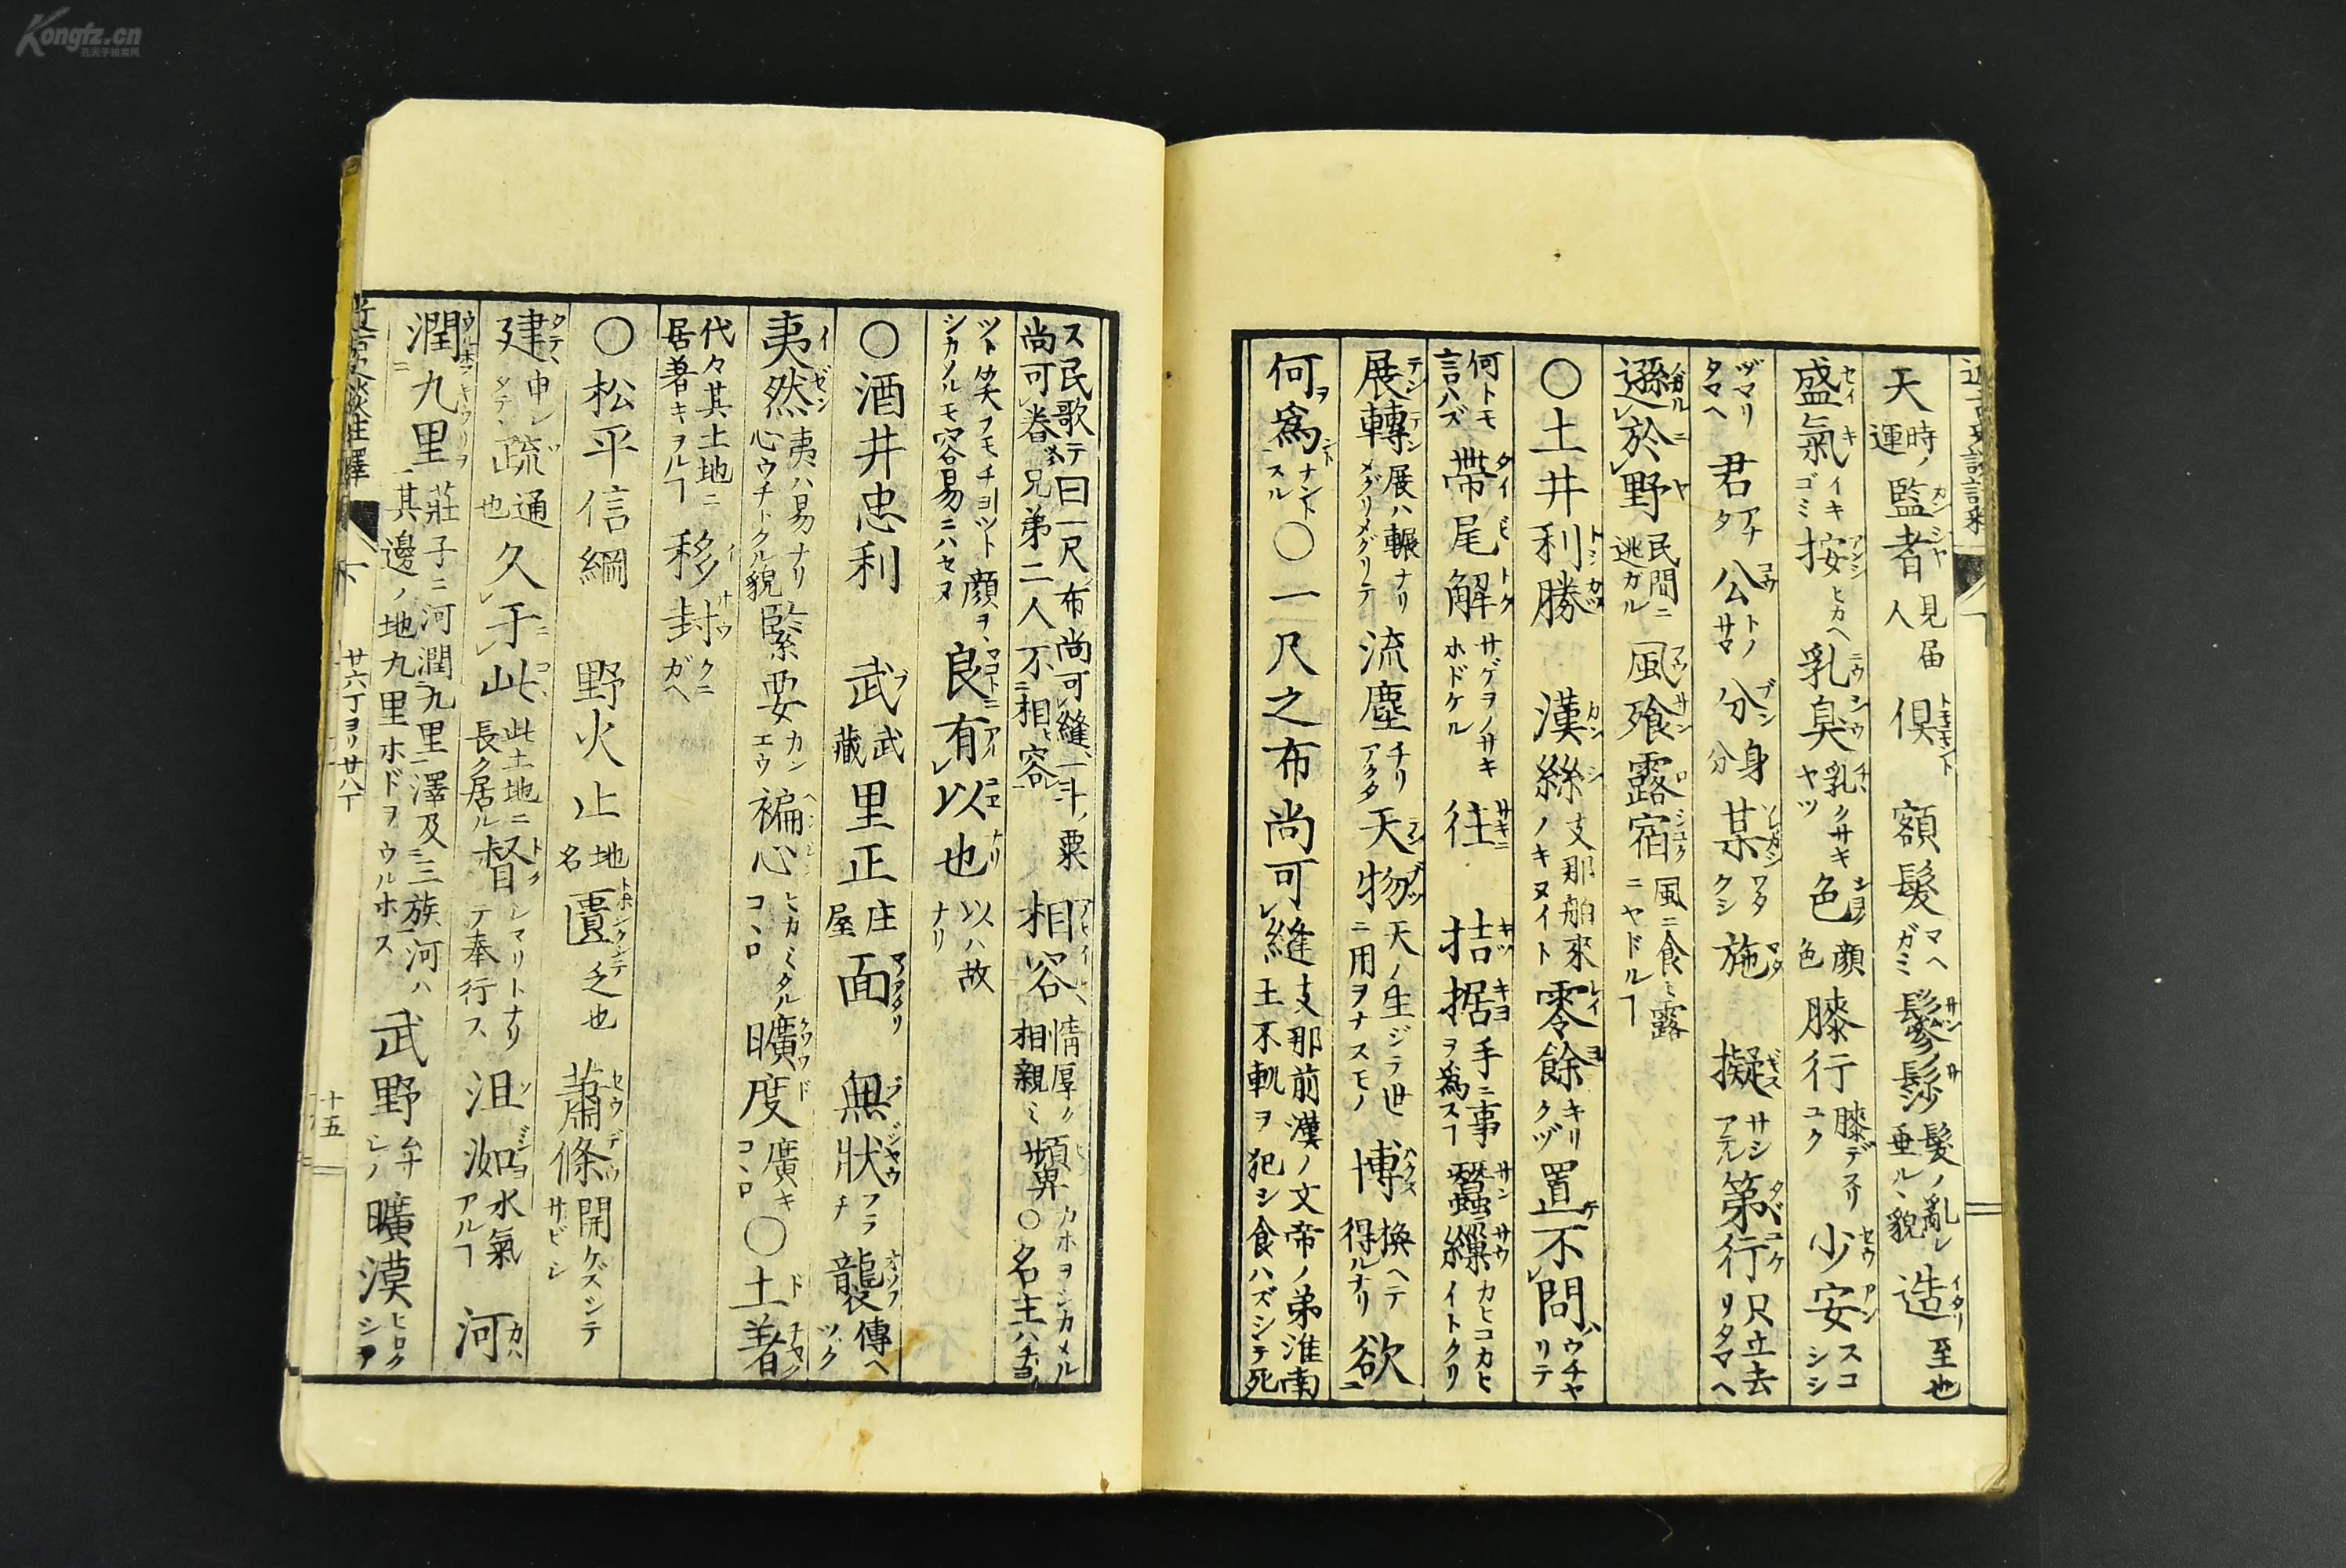 天時ノ運監者見届人俱額髮マヘガミ鬖髿髮ノ亂レ垂ルヽ貌造至也
盛氣イキゴミ按ヒカヘ乳臭乳クサキヤツ色顔色膝行膝デスリユク少安スコシシ
ヅマリタマヘ君アナタ公トノサマ分身分某ワタクシ施擬サシアテル第行只立去リタマヘ
遜於野民間ニ逃ガル風飱露宿風ニ食ミ露ニヤドルヿ
〇土井利勝 漢絲支那舶來ノキヌイト零餘キリクヅ置不問ウチヤリテ
何トモ言ハズ帶尾解サゲヲノサキホドケル往拮据手ニ事ヲ為スヿ蠶繅カヒコカヒイトクリ
展轉展ハ輾ナリメグリメグリテ流塵チリアクタ天物天ノ生ジテ世ニ用ヲナスモノ博換ヘテ得ルナリ欲
何為ナントスル〇一尺之布尚可縫支那前漢ノ文帝ノ弟淮南王不軌ヲ犯シ食ハズシテ死
ス民歌テ曰一尺布尚可縫一斗ノ粟尚可舂兄弟二人不相容相容情厚ク相親ミ顰カホヲシカメル〇名主ハチヨ
ツト笑フモチヨツト顔ヲシカメルモ容易ニハセヌ良有以也以ハ故ナリ
〇酒井忠利 武武藏里正庄屋面 無狀ブラチ襲傳ヘツグ
夷然夷ハ易ナリ心ウチトクル貌緊要カンエウ褊心ヒガミタルコヽロ曠度廣キコヽロ〇土著
代々其土地ニ居着キヲルヿ移封クニガヘ
〇松平信綱 野火止地名匱乏也蕭條開ケズシテサビシ
建申レタテ疏通也久于此此土地ニ長ク居ル督シマリトナリテ奉行ス沮洳水氣アルヿ河
潤九里莊子ニ河潤九里澤及三族河ハ其邊ノ地九里ホドヲウルホス武野ムサシノ曠漠ヒロクシテ
下
廿六丁ヨリ廿八丁
十五
Kongfz.cn